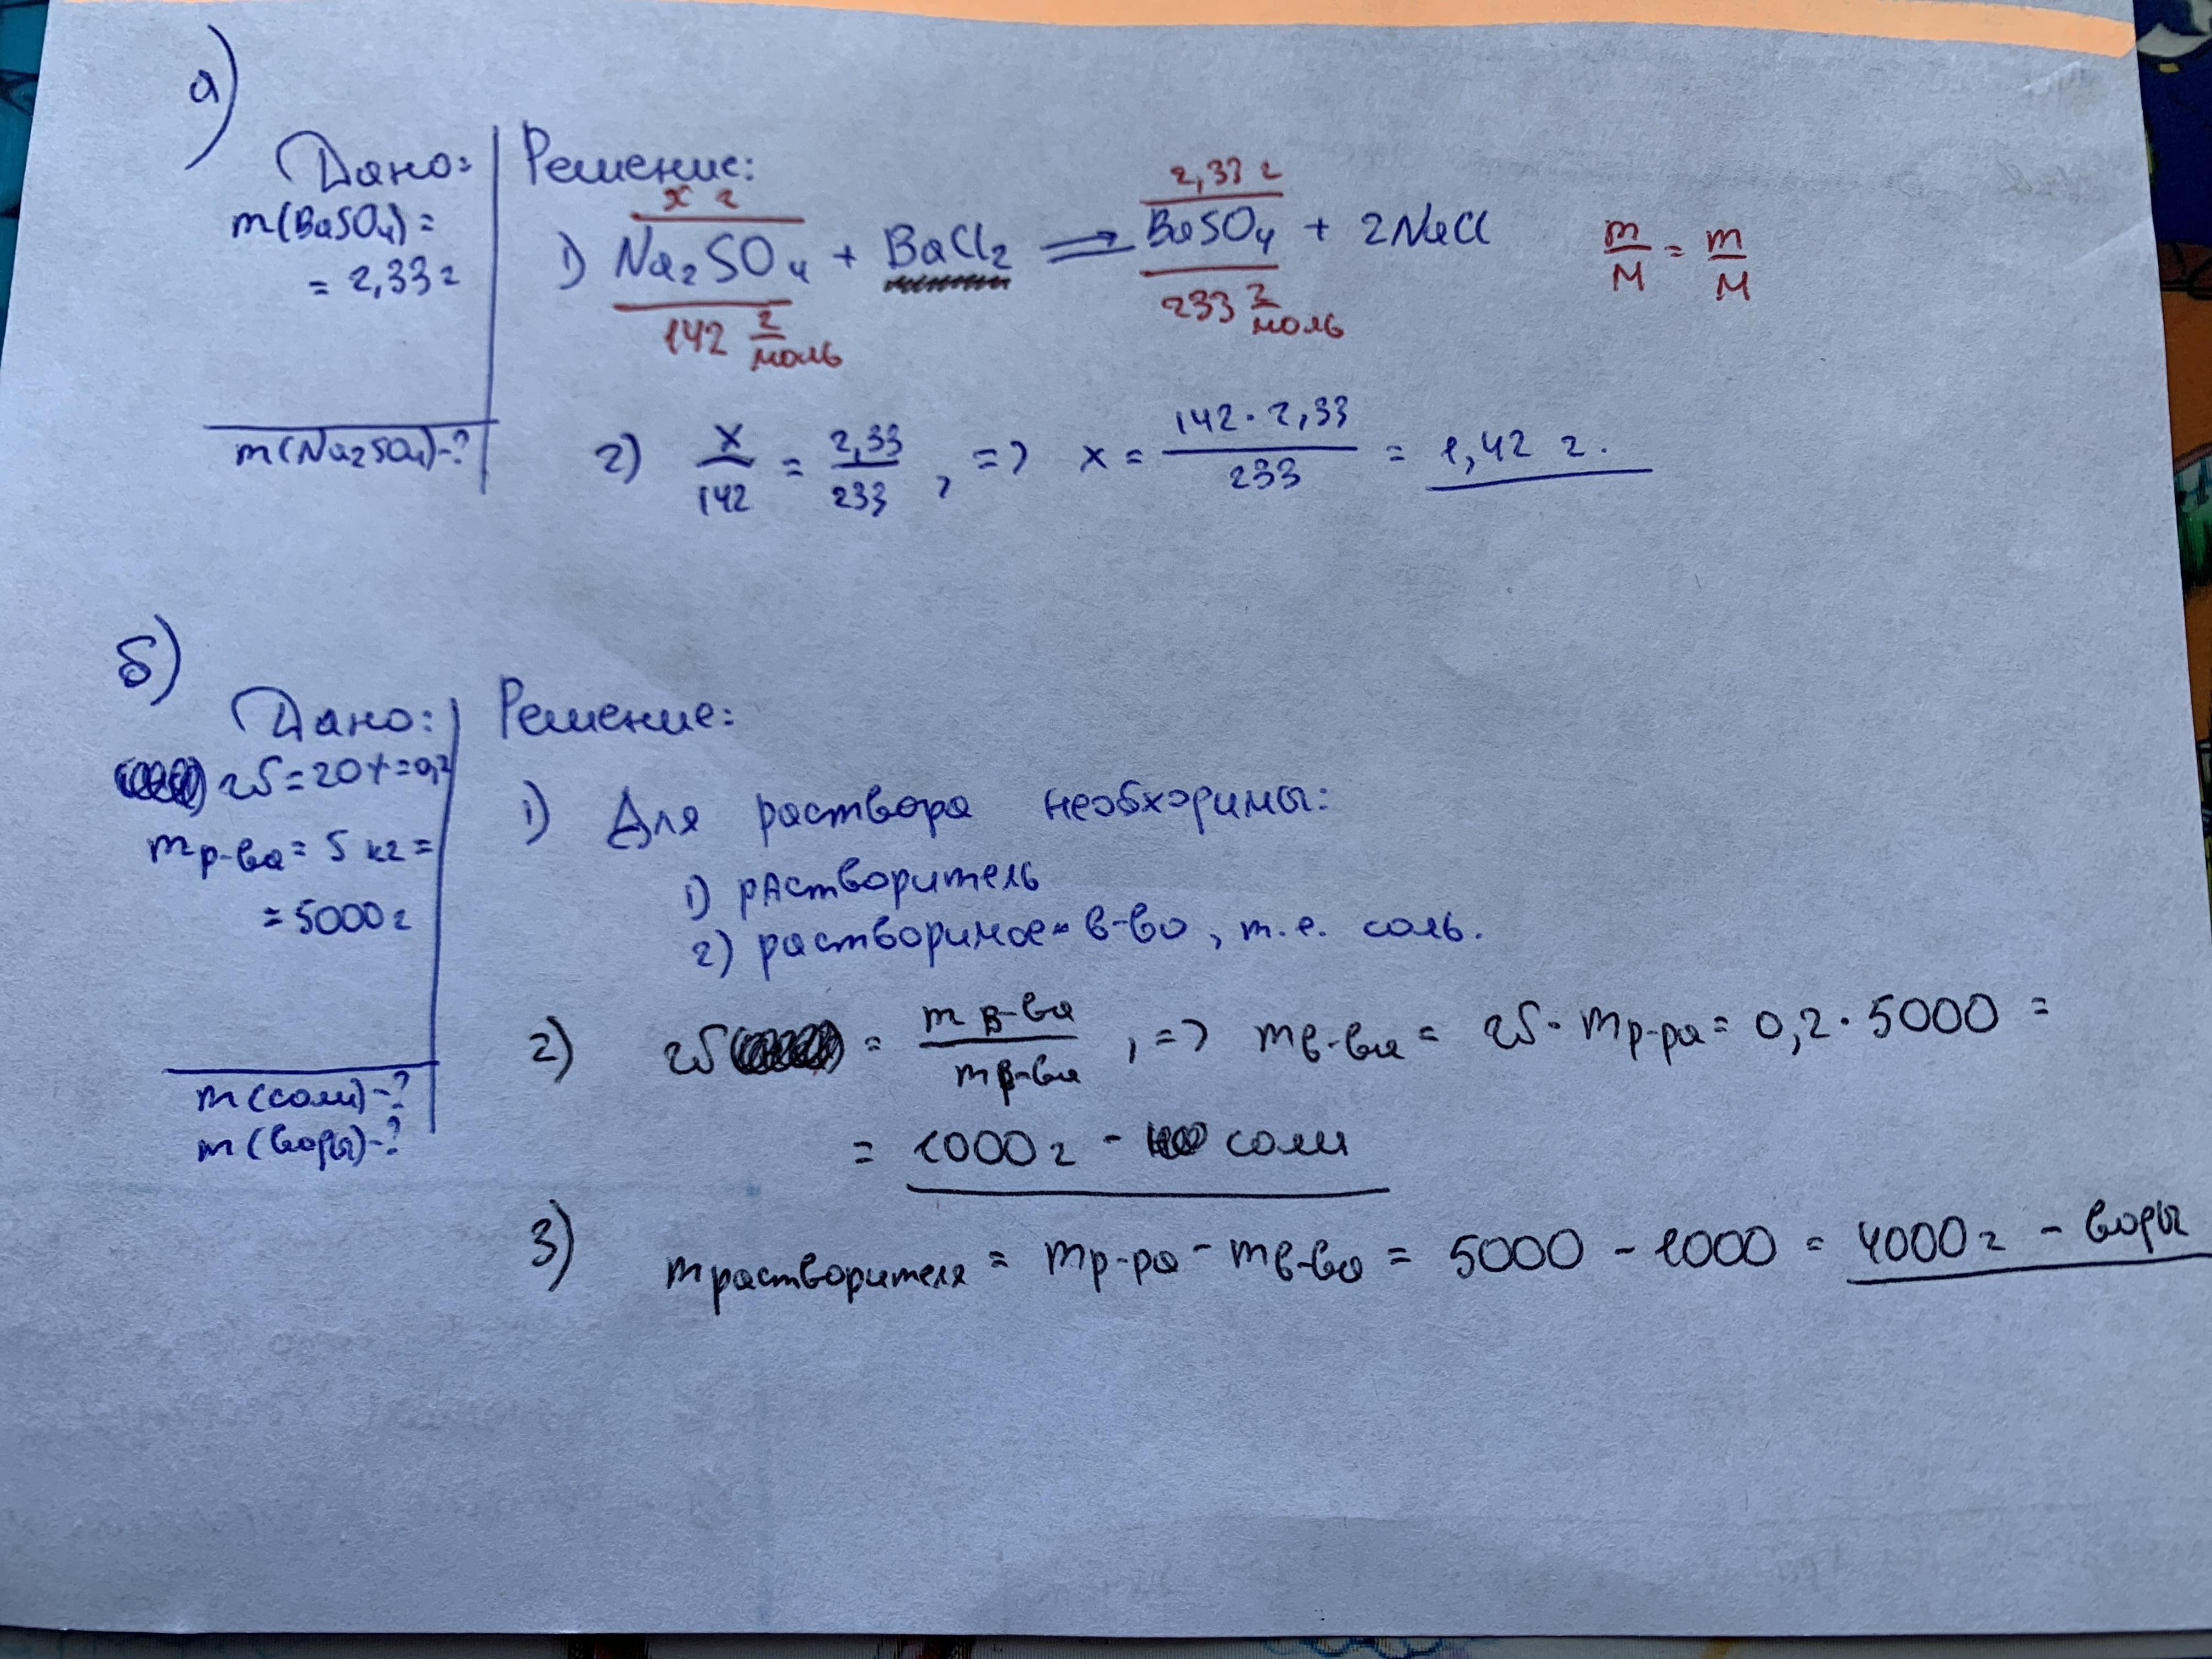 а)
Дано:
m(BaSO₄) =
= 2,33 г
m(Na₂SO₄)-?
Решение:
x г
2,33 г
1) Na₂SO₄ + BaCl₂ ⟹ BaSO₄ + 2NaCl
142 г/моль
233 г/моль
m/M = m/M
2) x/142 = 2,33/233 , => x = 142·2,33/233 = 1,42 г.
б)
Дано:
w = 20% = 0,2
m р-ва = 5 кг =
= 5000 г
m(соли)-?
m(воды)-?
Решение:
1) Для раствора необходимы:
1) рАстворитель
2) растворимое в-во, т.е. соль.
2) w = m в-ва/m р-ва , => m в-ва = w · m р-ра = 0,2 · 5000 =
= 1000 г - соли
3) m растворителя = m р-ра - m в-ва = 5000 - 1000 = 4000 г - воды